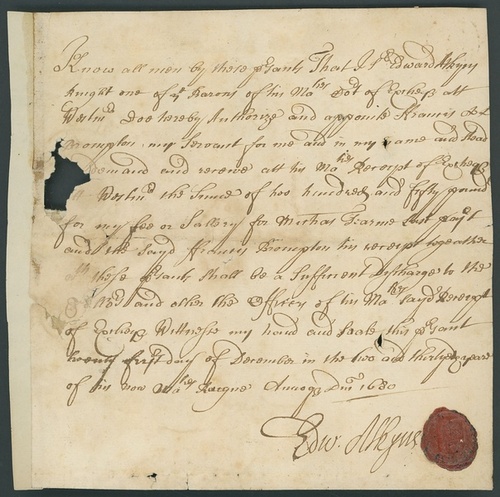 Know all men by these psants That I Sr Edward Atkyns
knight one of ye Barons of his Ma:ties Cort of Excheqr att
Westmr Doe hereby Authorize and appointe Francis
Brompton my Servant for me and in my name and stead
Demand and receive att his Ma:ties Receipt of Excheqr
Westmr the Sume of two hundred and fifty pounds
for my fee or Sallery for Michas Tearme Last past
and the Sayd Francis Brompton his receipt together
these psants shall be a Sufficient Discharge to the
and other the Officers of his Ma:ties Sayd Receipt
of Excheqr Wittnesse my hand and Seale this psant
twenty first day of December in the two and thirtyeth yeare
of his now Ma:ties Raigne Annoqe Dni 1680
Edw. Atkyns